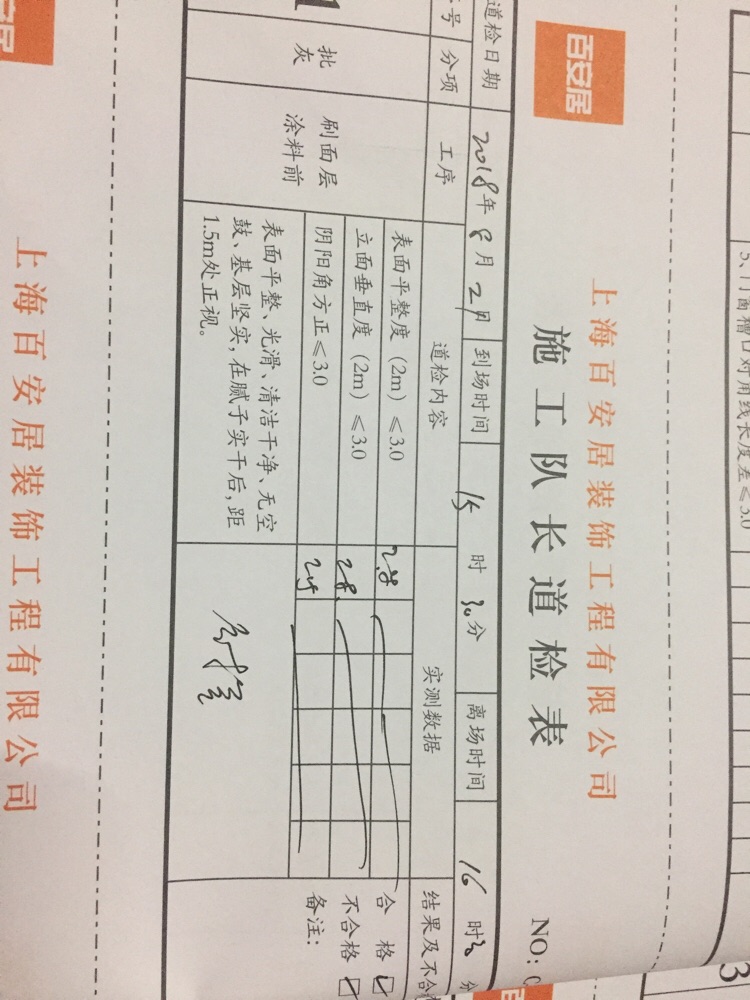 5、门窗槽口对角线长度差≤3.0
3
百安居
上海百安居装饰工程有限公司
施工队长道检表
NO:
道检日期 2018年8月2日 到场时间 15时30分 离场时间 16时 分
号 分项 工序 道检内容 实测数据 结果及不合
批灰 刷面层涂料前
表面平整度（2m）≤3.0 2.8 合格
立面垂直度（2m）≤3.0 2.8 不合格
阴阳角方正≤3.0 备注：
表面平整、光滑、清洁干净、无空
鼓、基层坚实，在腻子实干后，距
1.5m处正视。
上海百安居装饰工程有限公司